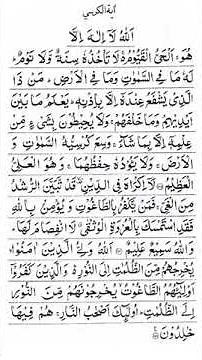 آية الكرسي
اَللّٰهُ لَاۤ اِلٰهَ اِلَّا
هُوَ ۚ اَلْحَيُّ الْقَيُّوْمُ ۚ لَا تَاْخُذُهٗ سِنَةٌ وَّلَا نَوْمٌ ؕ
لَهٗ مَا فِي السَّمٰوٰتِ وَمَا فِي الْاَرْضِ ؕ مَنْ ذَا
الَّذِيْ يَشْفَعُ عِنْدَهٗۤ اِلَّا بِاِذْنِهٖ ؕ يَعْلَمُ مَا بَيْنَ
اَيْدِيْهِمْ وَمَا خَلْفَهُمْ ۚ وَلَا يُحِيْطُوْنَ بِشَيْءٍ مِّنْ
عِلْمِهٖۤ اِلَّا بِمَا شَآءَ ۚ وَسِعَ كُرْسِيُّهُ السَّمٰوٰتِ وَ
الْاَرْضَ ۚ وَلَا يَـُٔوْدُهٗ حِفْظُهُمَا ۚ وَهُوَ الْعَلِيُّ
الْعَظِيْمُ ۝ لَاۤ اِكْرَاهَ فِي الدِّيْنِ ۙ قَدْ تَّبَيَّنَ الرُّشْدُ
مِنَ الْغَيِّ ۚ فَمَنْ يَّكْفُرْ بِالطَّاغُوْتِ وَ يُؤْمِنْۢ بِاللّٰهِ
فَقَدِ اسْتَمْسَكَ بِالْعُرْوَةِ الْوُثْقٰى ۗ لَا انْفِصَامَ لَهَا ؕ
وَاللّٰهُ سَمِيْعٌ عَلِيْمٌ ۝ اَللّٰهُ وَلِيُّ الَّذِيْنَ اٰمَنُوْا ۙ
يُخْرِجُهُمْ مِّنَ الظُّلُمٰتِ اِلَى النُّوْرِ ؕ وَ الَّذِيْنَ كَفَرُوْۤا
اَوْلِيٰٓـُٔهُمُ الطَّاغُوْتُ ۙ يُخْرِجُوْنَهُمْ مِّنَ النُّوْرِ
اِلَى الظُّلُمٰتِ ؕ اُولٰٓئِكَ اَصْحٰبُ النَّارِ ۚ هُمْ فِيْهَا
خٰلِدُوْنَ ۝